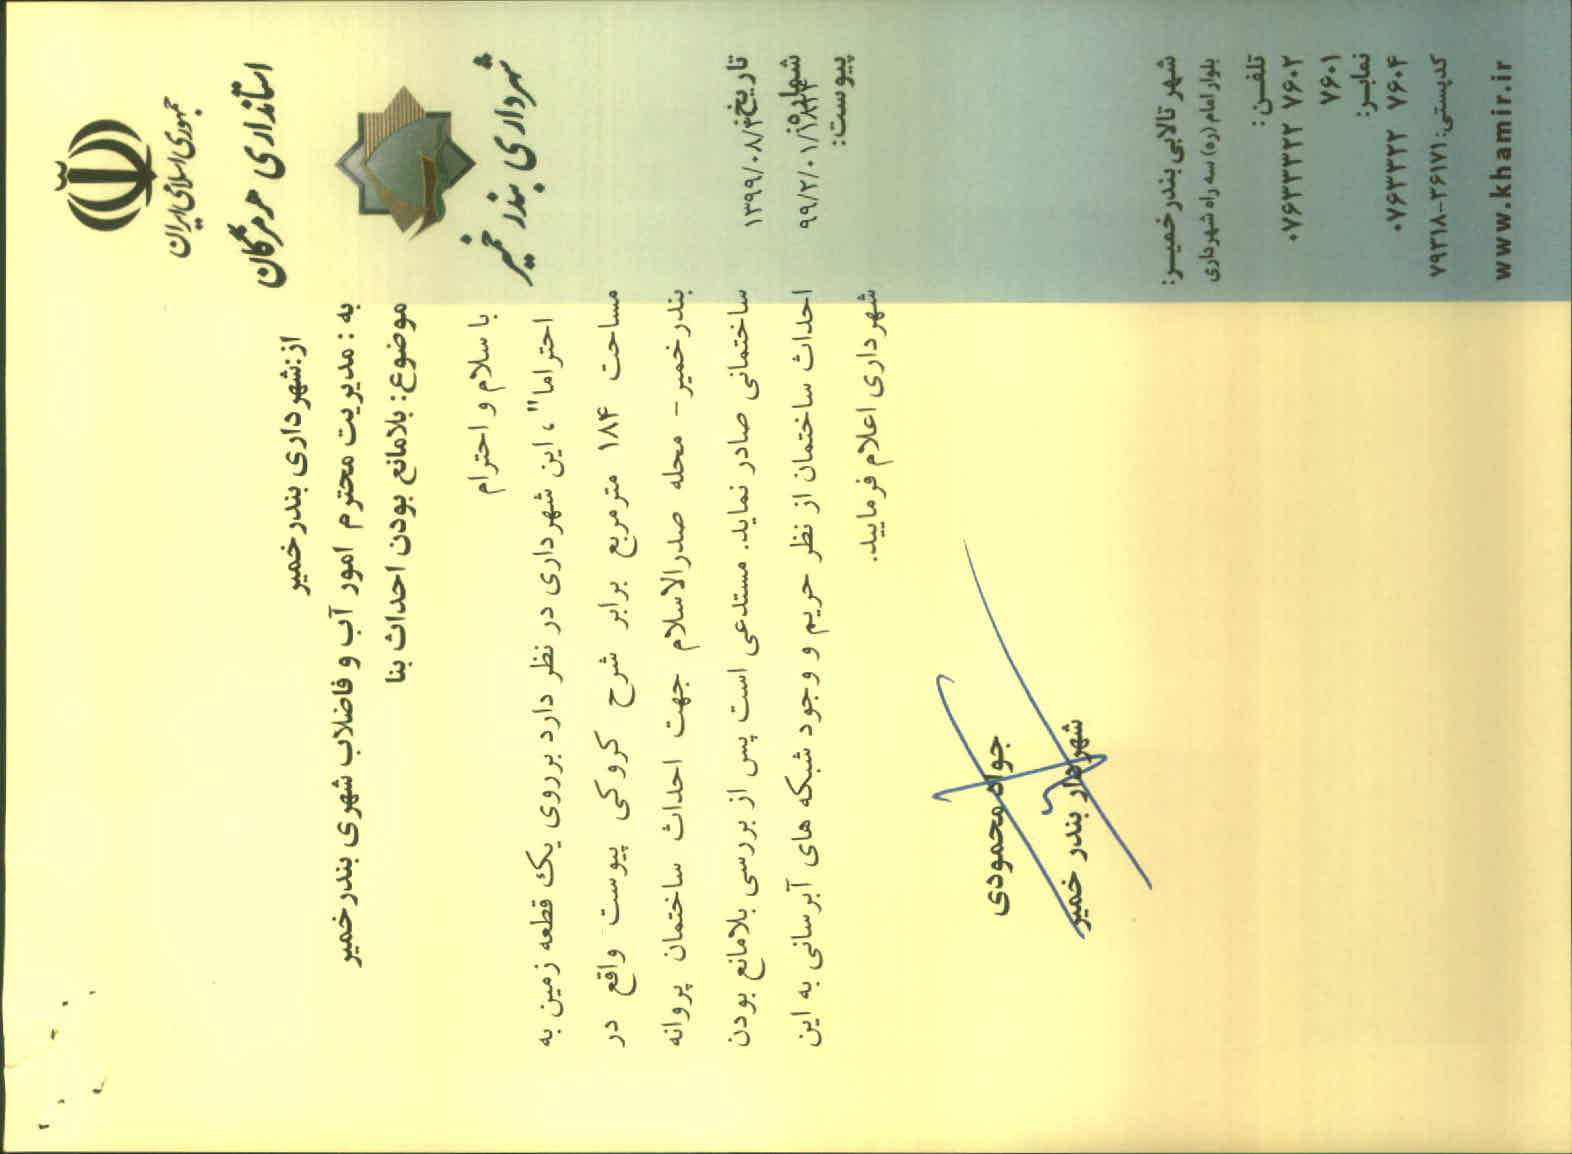 جمهوری اسلامی ایران
استانداری هرمزگان
شهرداری بندر خمیر
تاریخ:
۱۳۹۹/۰۸/
شماره:
۹۹/۲/۰۱/
پیوست:
شهر تالابی بندر خمیر:
بلوار امام (ره) سه راه شهرداری
تلفن:
۰۷۶۳۳۲۲ ۷۶۰۲
۷۶۰۱
نمابر:
۰۷۶۳۳۲۲ ۷۶۰۴
کدپستی: ۷۹۳۱۸-۲۶۱۷۱
www.khamir.ir
از:شهرداری بندر خمیر
به : مدیریت محترم امور آب و فاضلاب شهری بندر خمیر
موضوع: بلامانع بودن احداث بنا
با سلام و احترام
احتراما"، این شهرداری در نظر دارد برروی یک قطعه زمین به
مساحت ۱۸۴ متر مربع برابر شرح کروکی پیوست واقع در
بندر خمیر- محله صدرالاسلام جهت احداث ساختمان پروانه
ساختمانی صادر نماید. مستدعی است پس از بررسی بلامانع بودن
احداث ساختمان از نظر حریم و وجود شبکه های آبرسانی به این
شهرداری اعلام فرمایید.
جواد محمودی
شهردار بندر خمیر